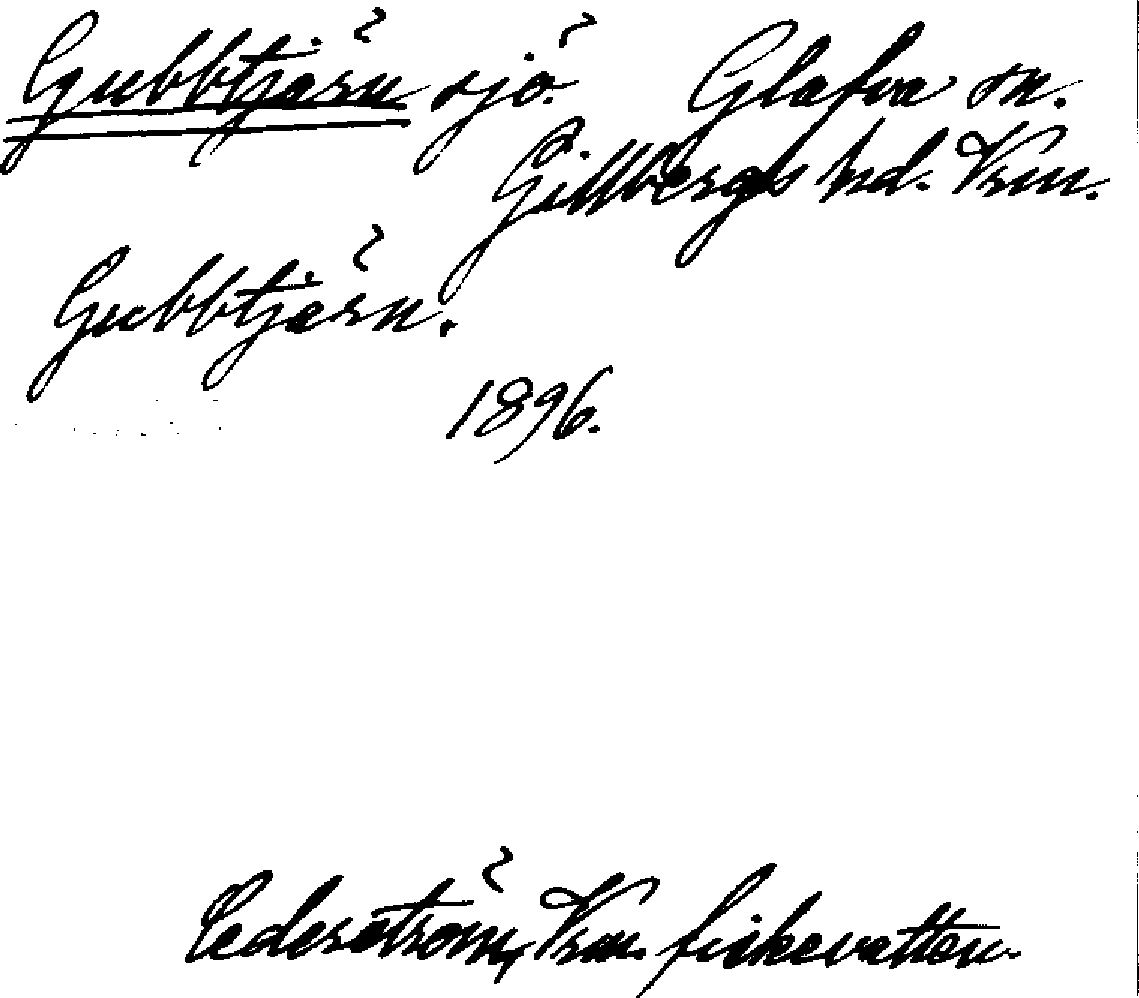 Gubbtjärn sjö. Glafva sn.
Gillbergs hd. Vrm.
Gubbtjärn.
1896.
Cederström, Vrm. fiskevatten.